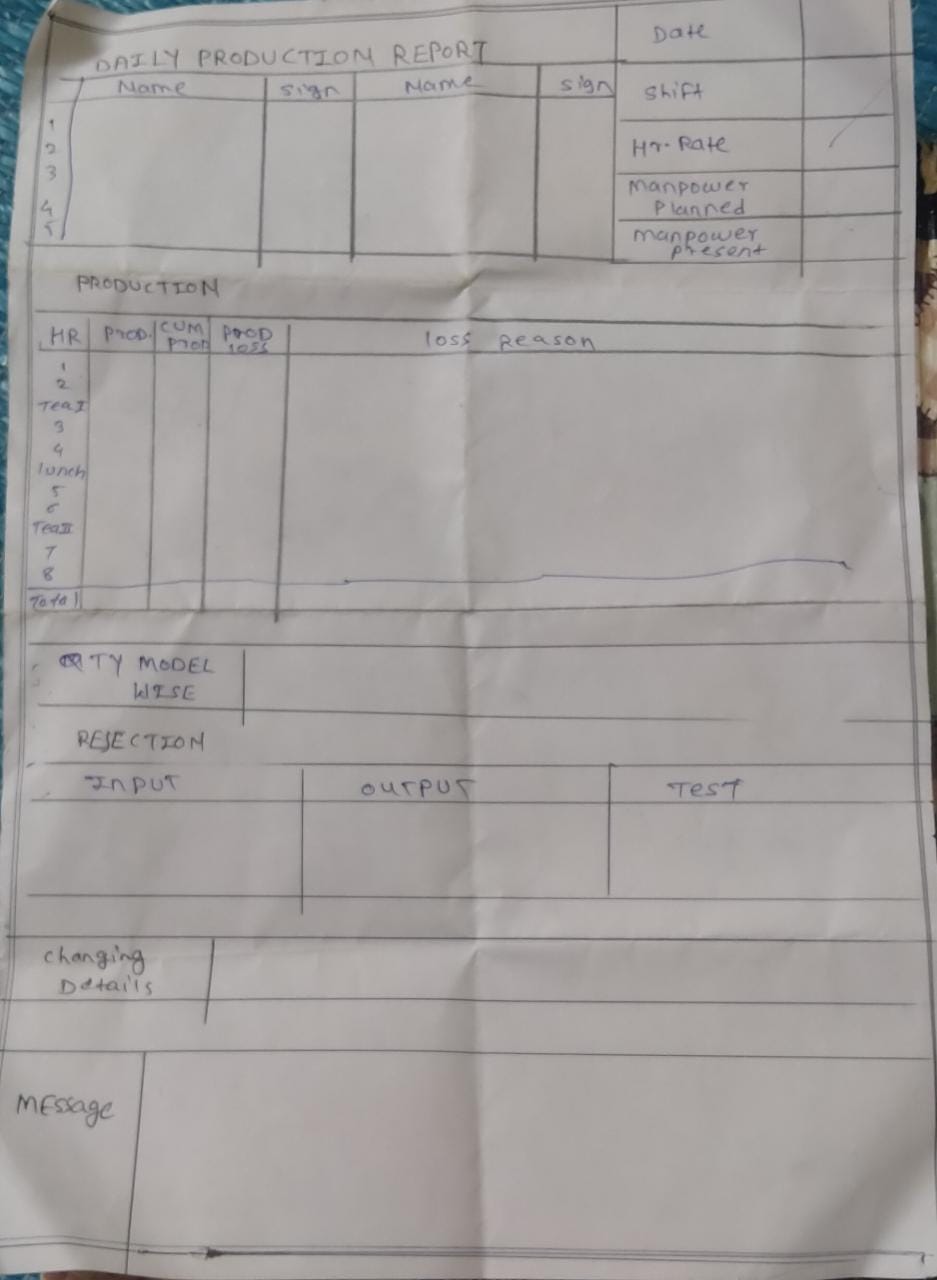 DAILY PRODUCTION REPORT
Date
Name Sign Name Sign
Shift
Hr. Rate
Manpower
Planned
Manpower
Present
1
2
3
4
5
PRODUCTION
HR Prod. CUM Prod PROD loss loss Reason
1
2
Tea I
3
4
lunch
5
6
Tea II
7
8
Total
QTY MODEL
WISE
REJECTION
INPUT OUTPUT TEST
Changing
Details
MEssage